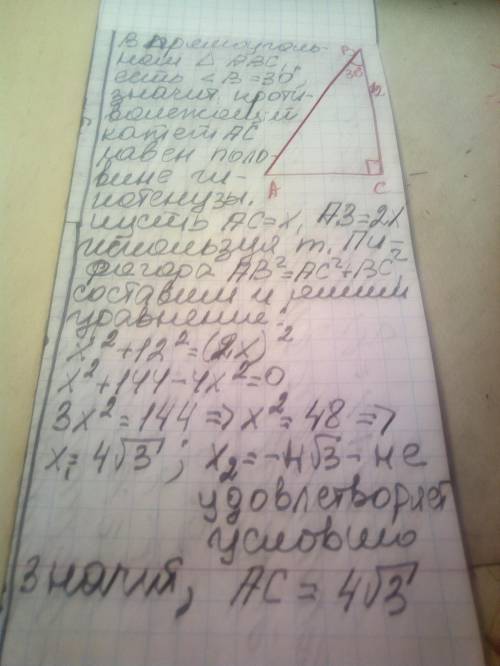 В прямоуголь-
ном △ ABC,
есть ∠B=30°,
значит проти-
волежащий
катет AC
равен поло-
вине ги-
потенузы.
пусть AC=x, AB=2x
используя т. Пи-
фагора AB²=AC²+BC²
составим и решим
уравнение:
x²+12²=(2x)²
x²+144-4x²=0
3x²=144 => x²=48 =>
x₁=4√3; x₂=-4√3 - не
удовлетворяет
условию
значит, AC=4√3
B
30°
12
A
C